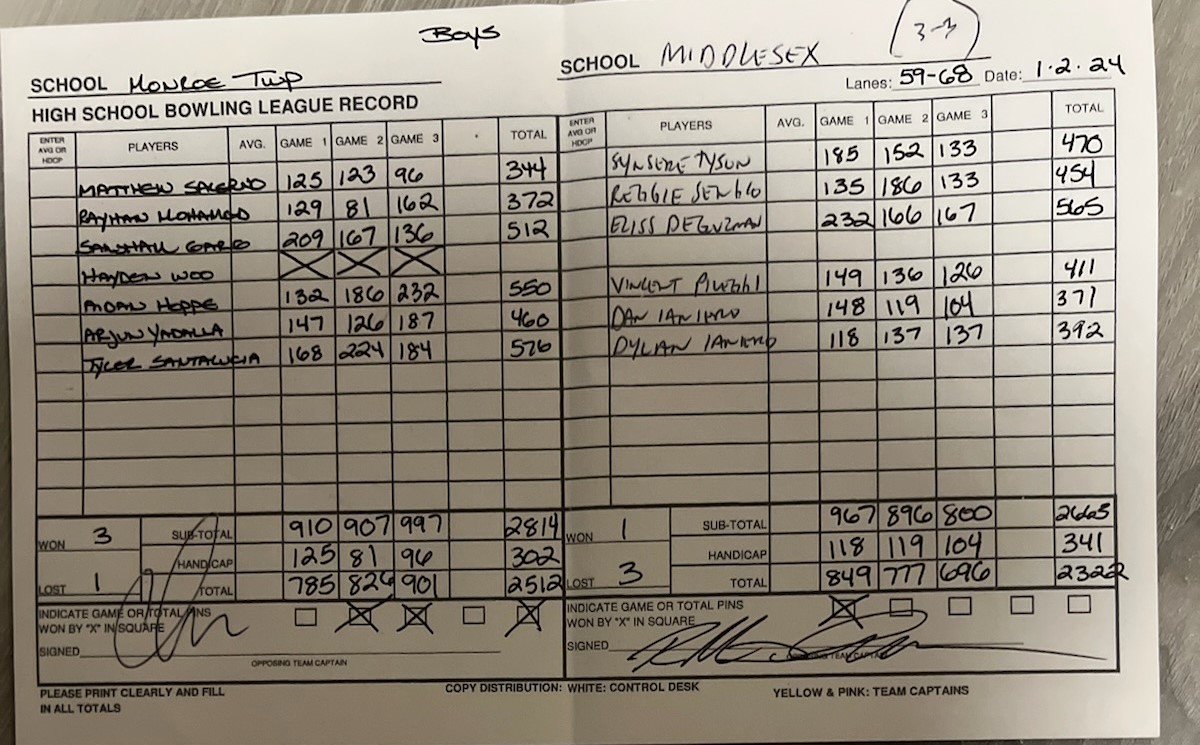 Boys
3-3
SCHOOL MONROE TWP
SCHOOL MIDDLESEX
Lanes: 59-68 Date: 1.2.24
HIGH SCHOOL BOWLING LEAGUE RECORD
ENTER AVG OR HDCP PLAYERS AVG. GAME 1 GAME 2 GAME 3 TOTAL
MATTHEW SALERNO 125 123 96 344
RAYHAN MOHAMOD 129 81 162 372
GARG 209 167 136 512
HAYDEN WOO X X X
AIDAN HOPPE 132 186 232 550
ARJUN YADALLA 147 126 187 460
TYLER SANTALUCIA 168 224 184 576
WON 3 SUB-TOTAL 910 907 997 2814
HANDICAP 125 81 96 302
LOST 1 TOTAL 785 826 901 2512
INDICATE GAME OR TOTAL PINS
WON BY "X" IN SQUARE
SIGNED
OPPOSING TEAM CAPTAIN
ENTER AVG OR HDCP PLAYERS AVG. GAME 1 GAME 2 GAME 3 TOTAL
SYNSERE TYSON 185 152 133 470
REGGIE 135 186 133 454
ELISS DEGUZMAN 232 166 167 565
VINCENT 149 136 126 411
DAN IANIERO 148 119 104 371
DYLAN IANIERO 118 137 137 392
WON 1 SUB-TOTAL 967 896 800 2665
HANDICAP 118 119 104 341
LOST 3 TOTAL 849 777 696 2322
INDICATE GAME OR TOTAL PINS
WON BY "X" IN SQUARE
SIGNED
OPPOSING TEAM CAPTAIN
PLEASE PRINT CLEARLY AND FILL
IN ALL TOTALS
COPY DISTRIBUTION: WHITE: CONTROL DESK YELLOW & PINK: TEAM CAPTAINS